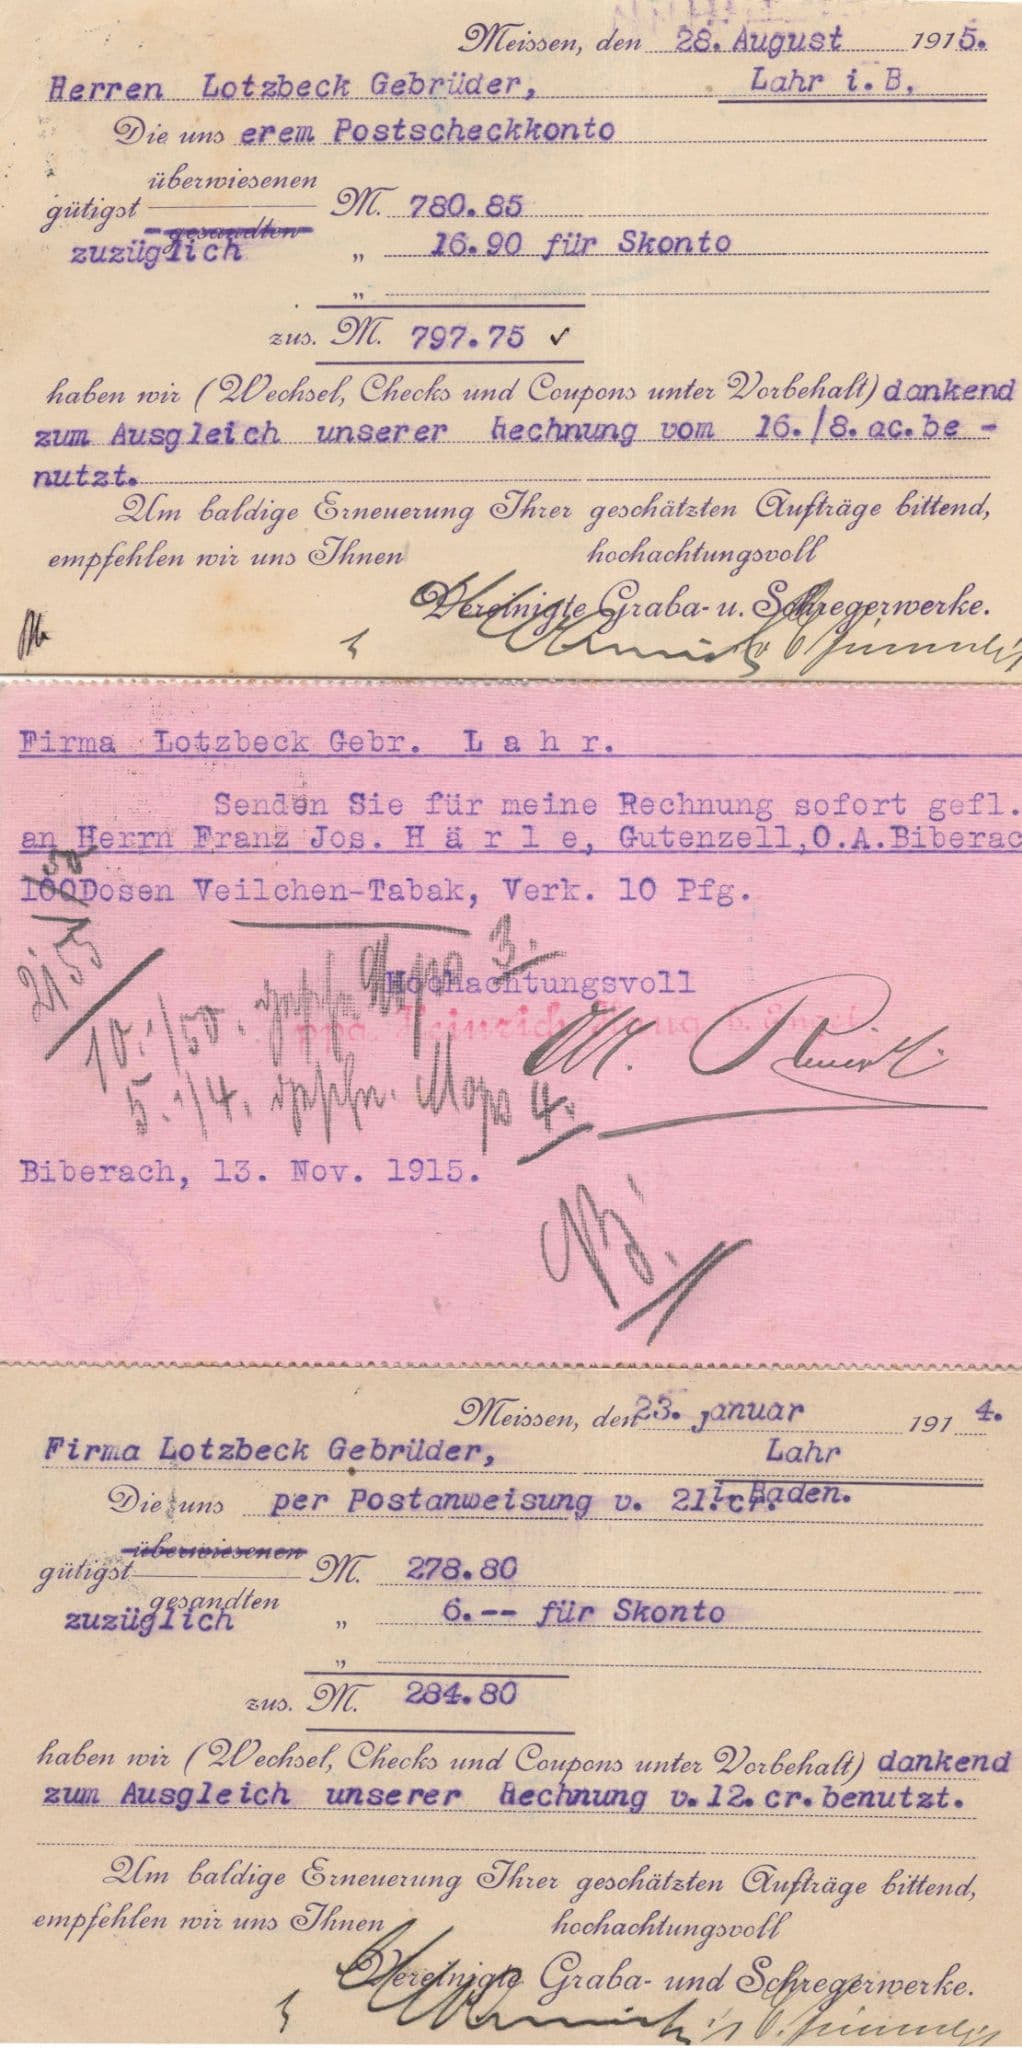 Meissen, den 28. August 1915.
Herren Lotzbeck Gebrüder, Lahr i. B.
Die uns erem Postscheckkonto
überwiesenen
gütigst M. 780.85
gesandten
zuzüglich „ 16.90 für Skonto
„
zus. M. 797.75 ✓
haben wir (Wechsel, Checks und Coupons unter Vorbehalt) dankend
zum Ausgleich unserer Rechnung vom 16./8. ac. be -
nutzt.
Um baldige Erneuerung Ihrer geschätzten Aufträge bittend,
empfehlen wir uns Ihnen hochachtungsvoll
Vereinigte Graba- u. Schregerwerke.
Firma Lotzbeck Gebr. L a h r.
Senden Sie für meine Rechnung sofort gefl.
an Herrn Franz Jos. H ä r l e, Gutenzell, O.A. Biberac
100 Dosen Veilchen-Tabak, Verk. 10 Pfg.
2155
Hochachtungsvoll
ppa. Heinrich
10. /50. Mops 3.
5. /4. Mops 4.
Biberach, 13. Nov. 1915.
Meissen, den 23. januar 1914.
Firma Lotzbeck Gebrüder, Lahr
i. Baden.
Die uns per Postanweisung v. 21. cr.
überwiesenen
gütigst M. 278.80
gesandten
zuzüglich „ 6.-- für Skonto
„
zus. M. 284.80
haben wir (Wechsel, Checks und Coupons unter Vorbehalt) dankend
zum Ausgleich unserer Rechnung v. 12. cr. benutzt.
Um baldige Erneuerung Ihrer geschätzten Aufträge bittend,
empfehlen wir uns Ihnen hochachtungsvoll
Vereinigte Graba- und Schregerwerke.